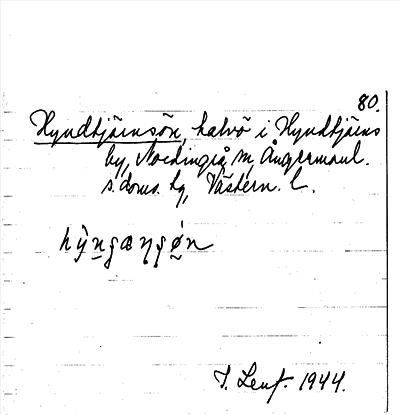 80.
Hyndtjärnsön, halvö i Hyndtjärns
by, Nordingrå sn, Ångermanl.
s. doms. hg, Västern. l.
I. Lenf. 1944.